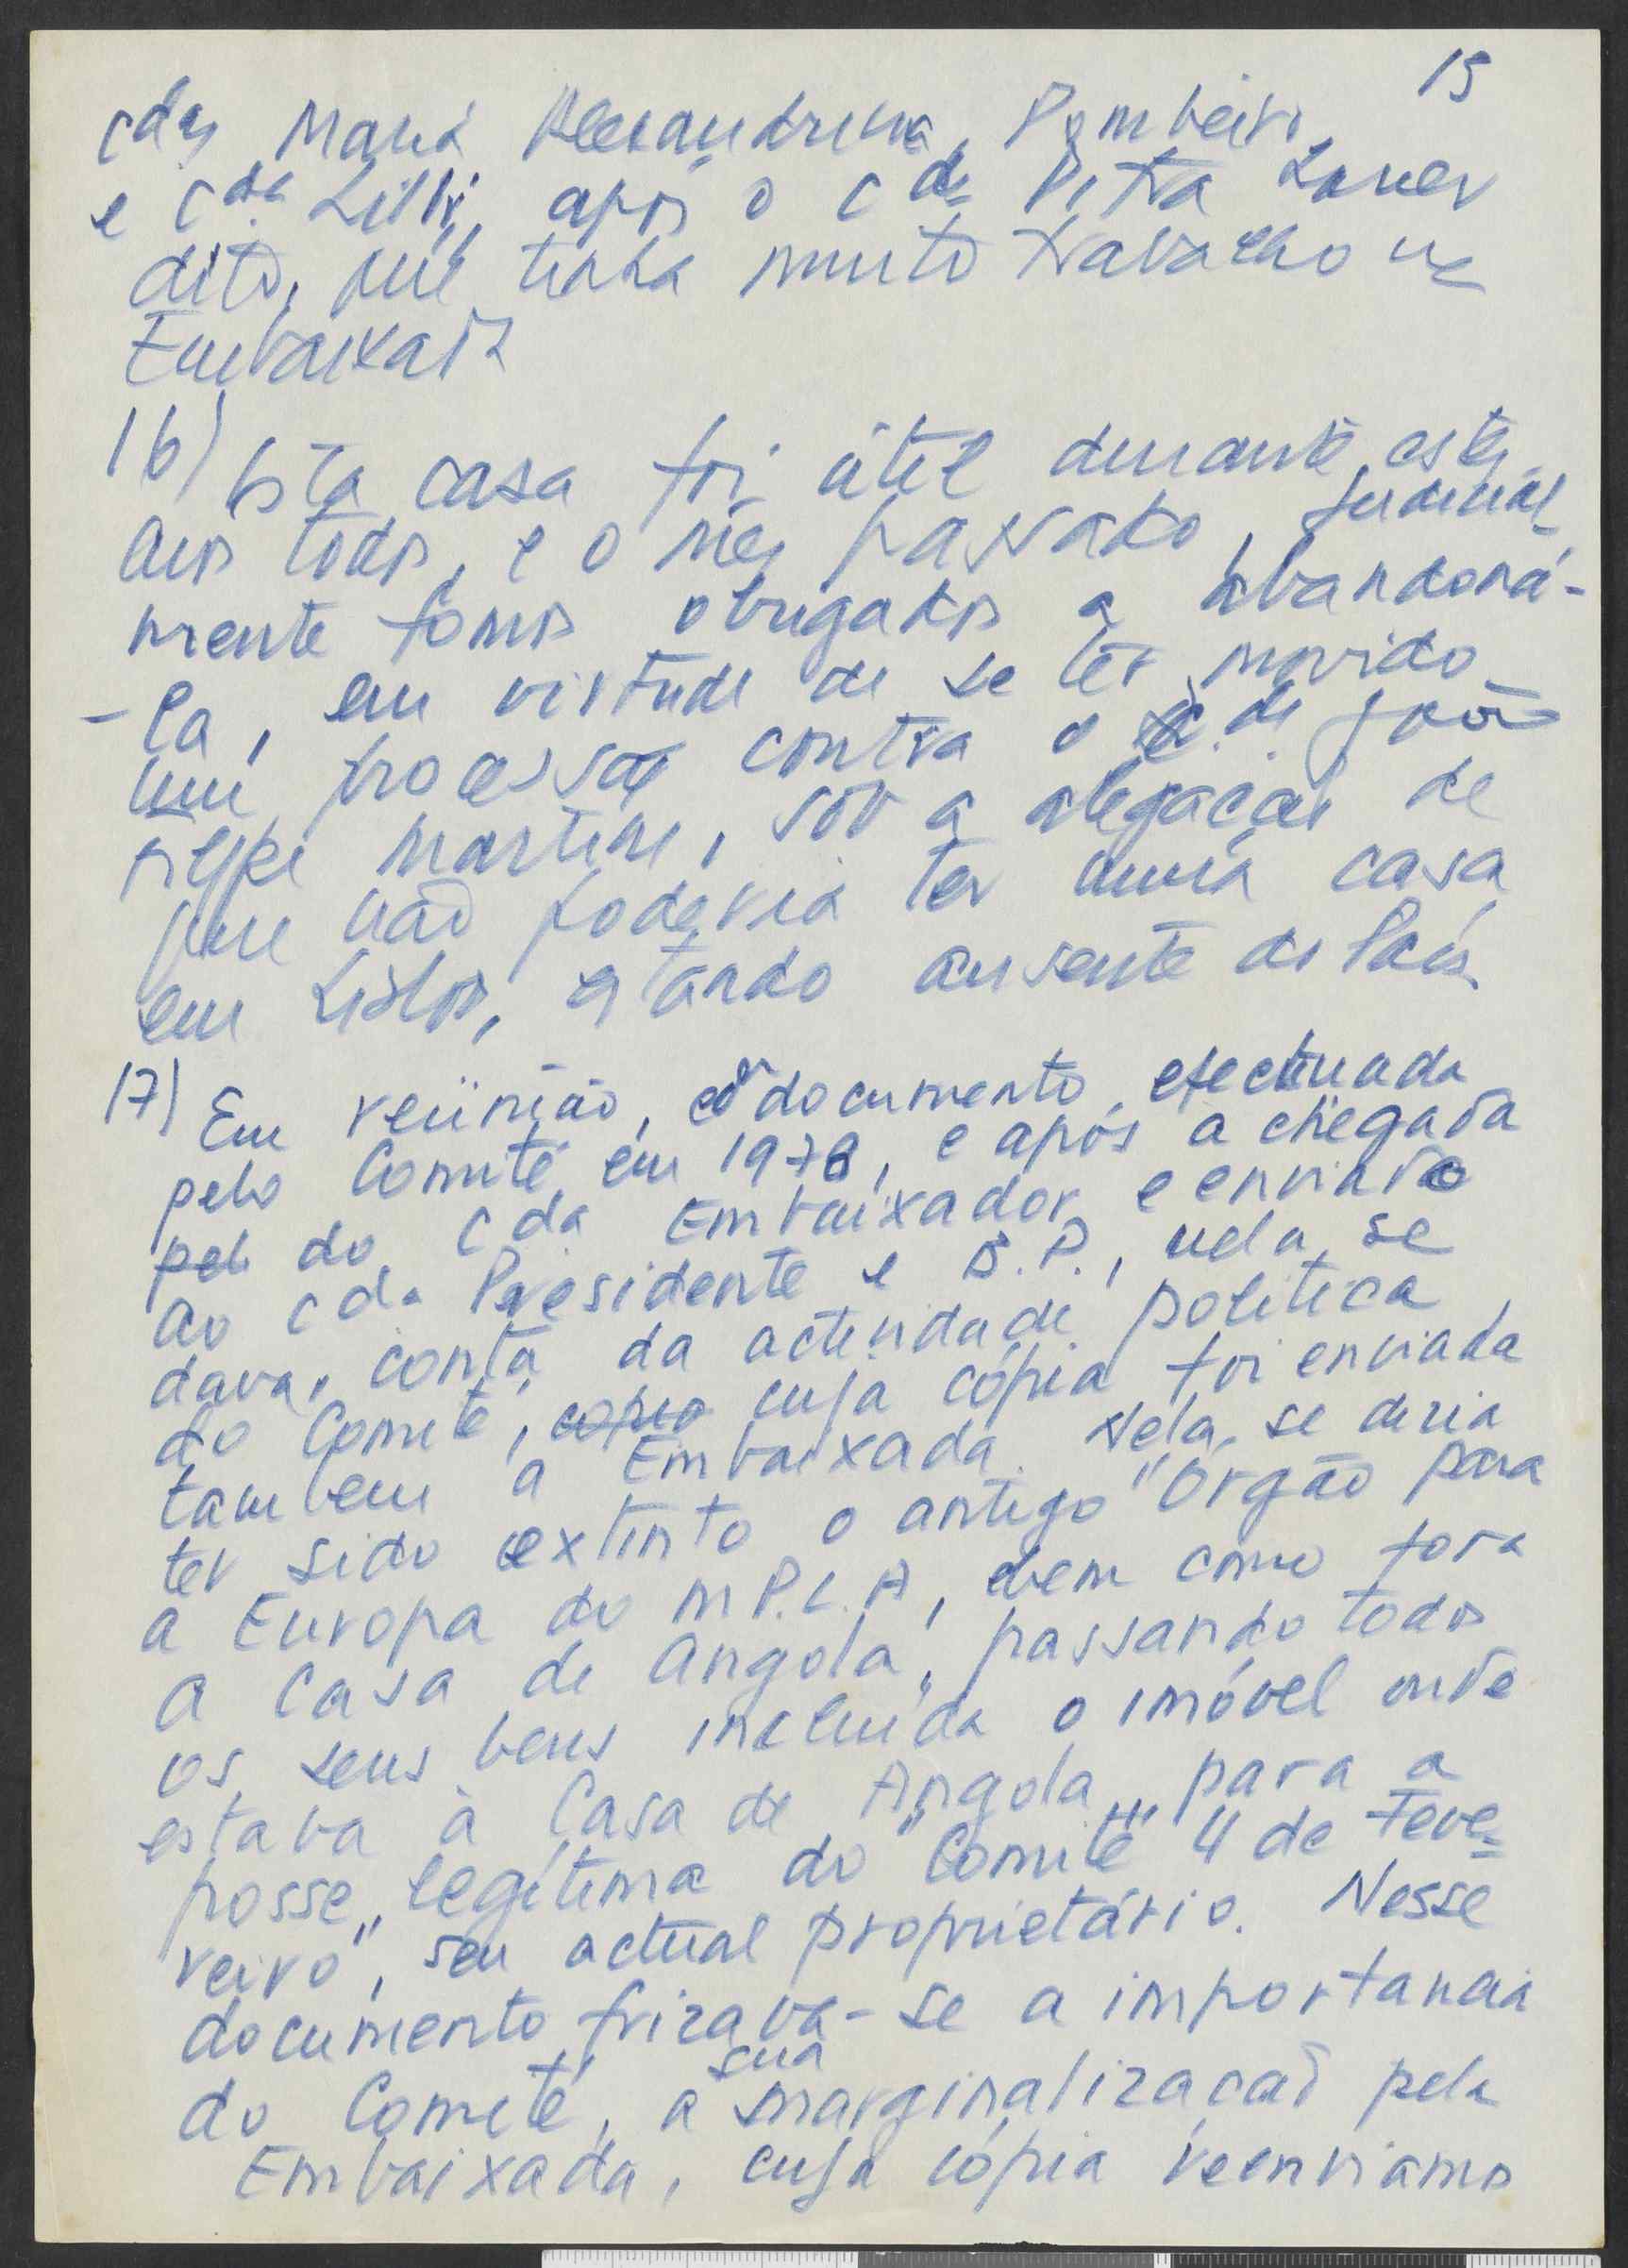 15
cdas Maria Alexandrina, Pombeiro,
e cda Lilli, após o cda Petra Laner
dito, que tinha muito trabalho na
Embaixada
16) Esta casa foi útil durante estes
anos todos, e o mês passado, judicial
mente fomos obrigados a abandoná-
-la, em virtude de se ter movido
um processo contra o c. de João
Filipe Martins, sob a alegação de
que não poderia ter uma casa
em Lisboa, estando ausente do País
17) Em reunião, e documento, efectuada
pelo Comité em 1978, e após a chegada
pel do cda Embaixador, e enviado
ao cda Presidente e B.P., nela, se
dava, conta da actividade politica
do Comité, copia cuja cópia foi enviada
tambem à Embaixada. Nela, se dizia
ter sido extinto o antigo "Orgão para
a Europa do M.P.L.A, bem como fora
a Casa de Angola, passando todos
os seus bens incluida o imóvel onde
estava à Casa de Angola, para a
posse, legítima do "Comité "4 de Feve=
reiro", seu actual proprietário. Nesse
documento frizava-se a importancia
do Comité, a sua marginalização pela
Embaixada, cuja cópia reenviamos